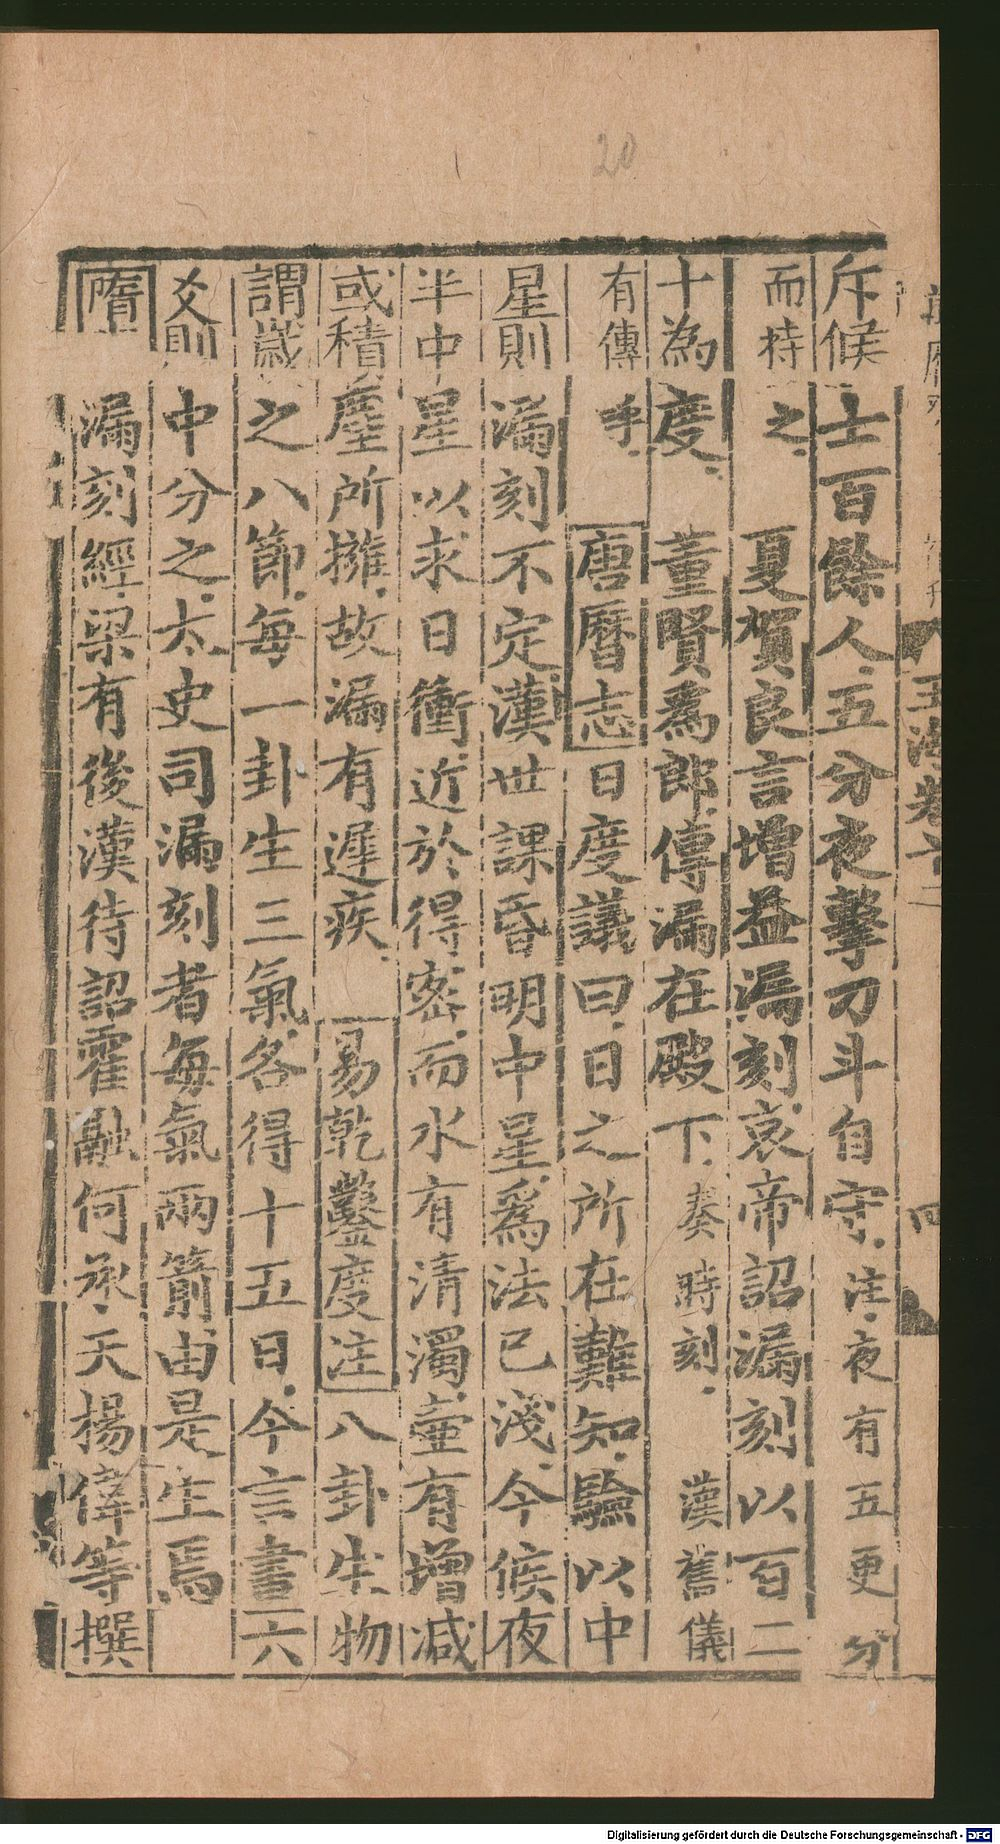 斥候士百餘人五分夜擊刀斗自守注夜有五更分
而持之 夏賀良言增益漏刻哀帝詔漏刻以百二
十為度 董賢為郎傳漏在殿下奏時刻 漢舊儀
有傳乎 唐曆志日度議曰日之所在難知驗以中
星則漏刻不定漢世課昏明中星爲法已淺今候夜
半中星以求日衝近於得密而水有清濁壷有增減
或積塵所擁故漏有遲疾易乾鑿度注八卦生物
謂歲之八節每一卦生三氣各得十五日今言書六
爻則中分之太史司漏刻者每氣兩箭由是生焉
隋 漏刻經梁有後漢待詔霍融何承天楊偉等撰
玉海卷十二
四
20
Digitalisierung gefördert durch die Deutsche Forschungsgemeinschaft - DFG